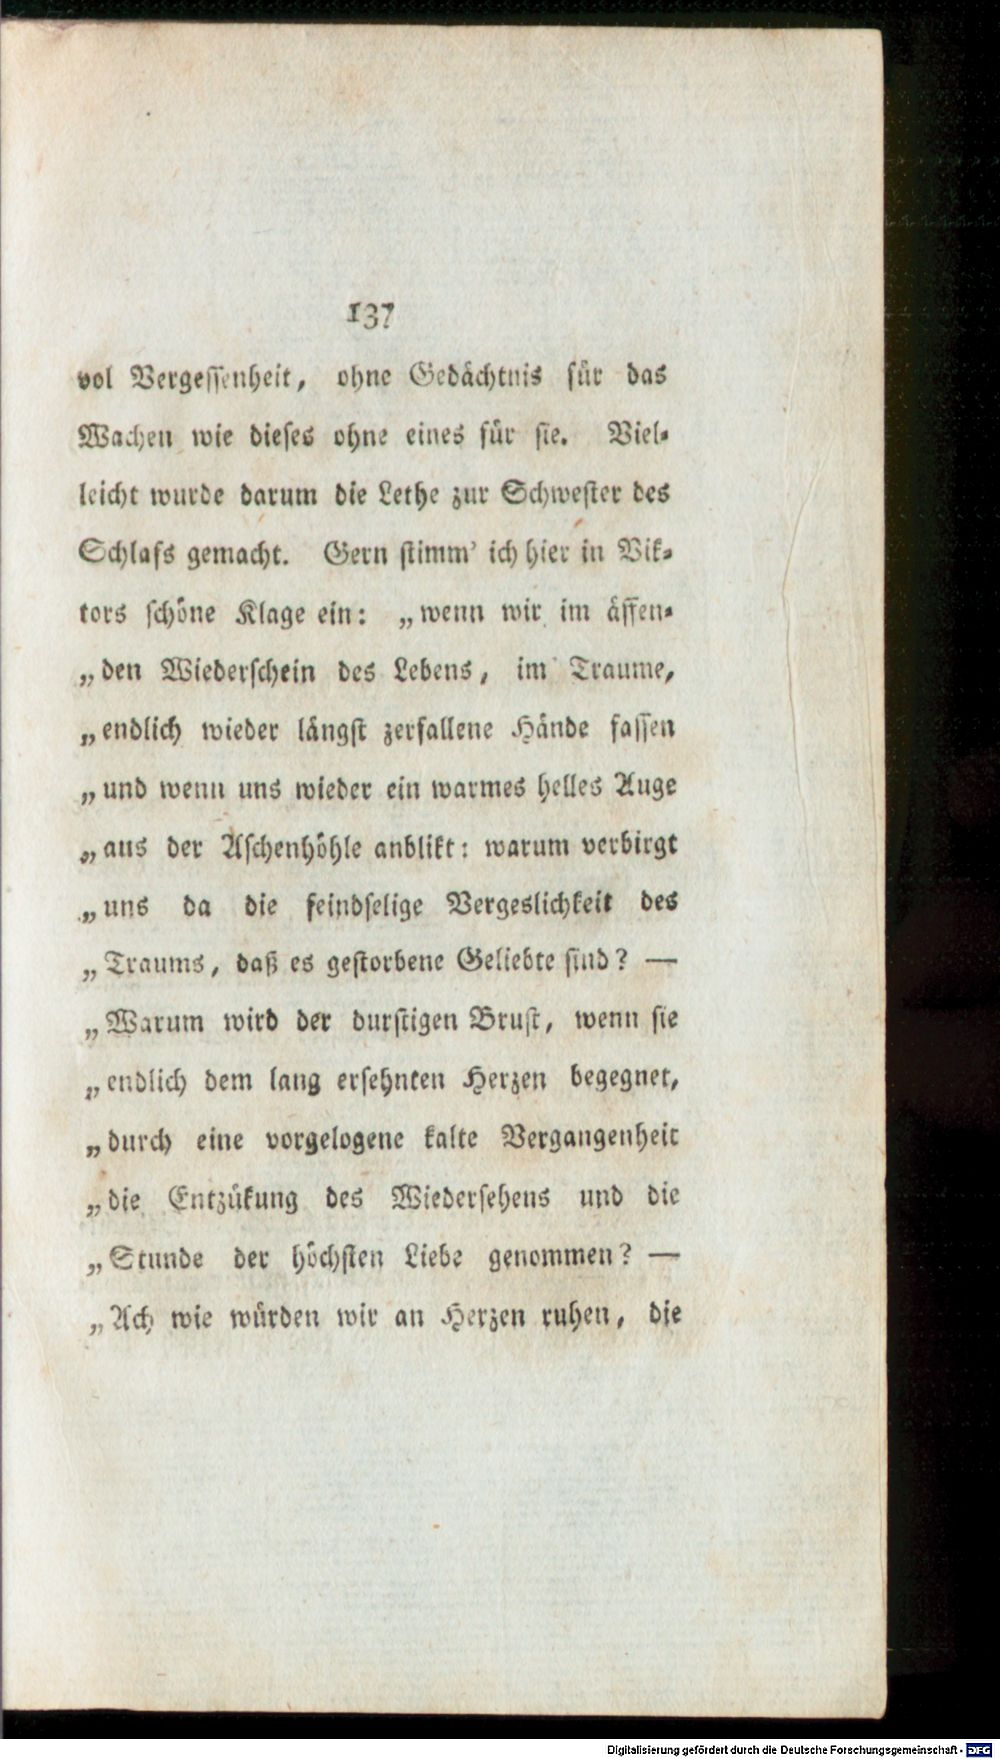 137
vol Vergessenheit, ohne Gedächtnis für das
Wachen wie dieses ohne eines für sie. Viel-
leicht wurde darum die Lethe zur Schwester des
Schlafs gemacht. Gern stimm' ich hier in Vik-
tors schöne Klage ein: „wenn wir im äffen-
„den Wiederschein des Lebens, im Traume,
„endlich wieder längst zerfallene Hände fassen
„und wenn uns wieder ein warmes helles Auge
„aus der Aschenhöhle anblikt: warum verbirgt
„uns da die feindselige Vergeslichkeit des
„Traums, daß es gestorbene Geliebte sind? —
„Warum wird der durstigen Brust, wenn sie
„endlich dem lang ersehnten Herzen begegnet,
„durch eine vorgelogene kalte Vergangenheit
„die Entzükung des Wiedersehens und die
„Stunde der höchsten Liebe genommen? —
„Ach wie würden wir an Herzen ruhen, die
Digitalisierung gefördert durch die Deutsche Forschungsgemeinschaft - DFG